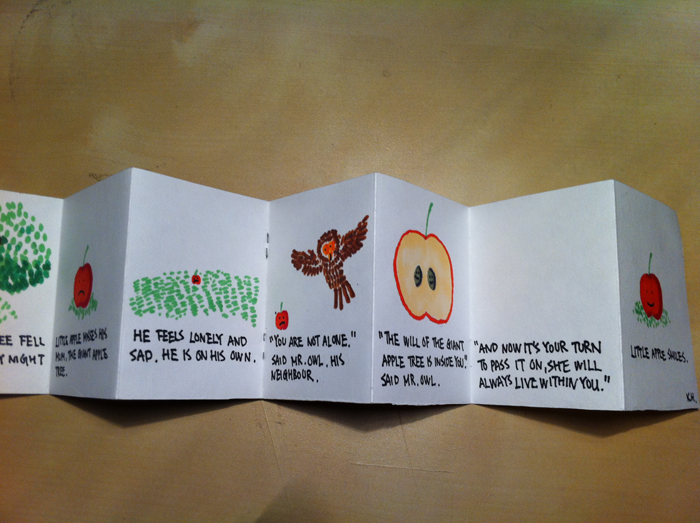 EE FELL
Y NIGHT
LITTLE APPLE MISSES HIS
MUM, THE GIANT APPLE
TREE.
HE FEELS LONELY AND
SAD. HE IS ON HIS OWN.
"YOU ARE NOT ALONE."
SAID MR. OWL, HIS
NEIGHBOUR.
"THE WILL OF THE GIANT
APPLE TREE IS INSIDE YOU."
SAID MR. OWL.
"AND NOW IT'S YOUR TURN
TO PASS IT ON, SHE WILL
ALWAYS LIVE WITHIN YOU."
LITTLE APPLE SMILES.